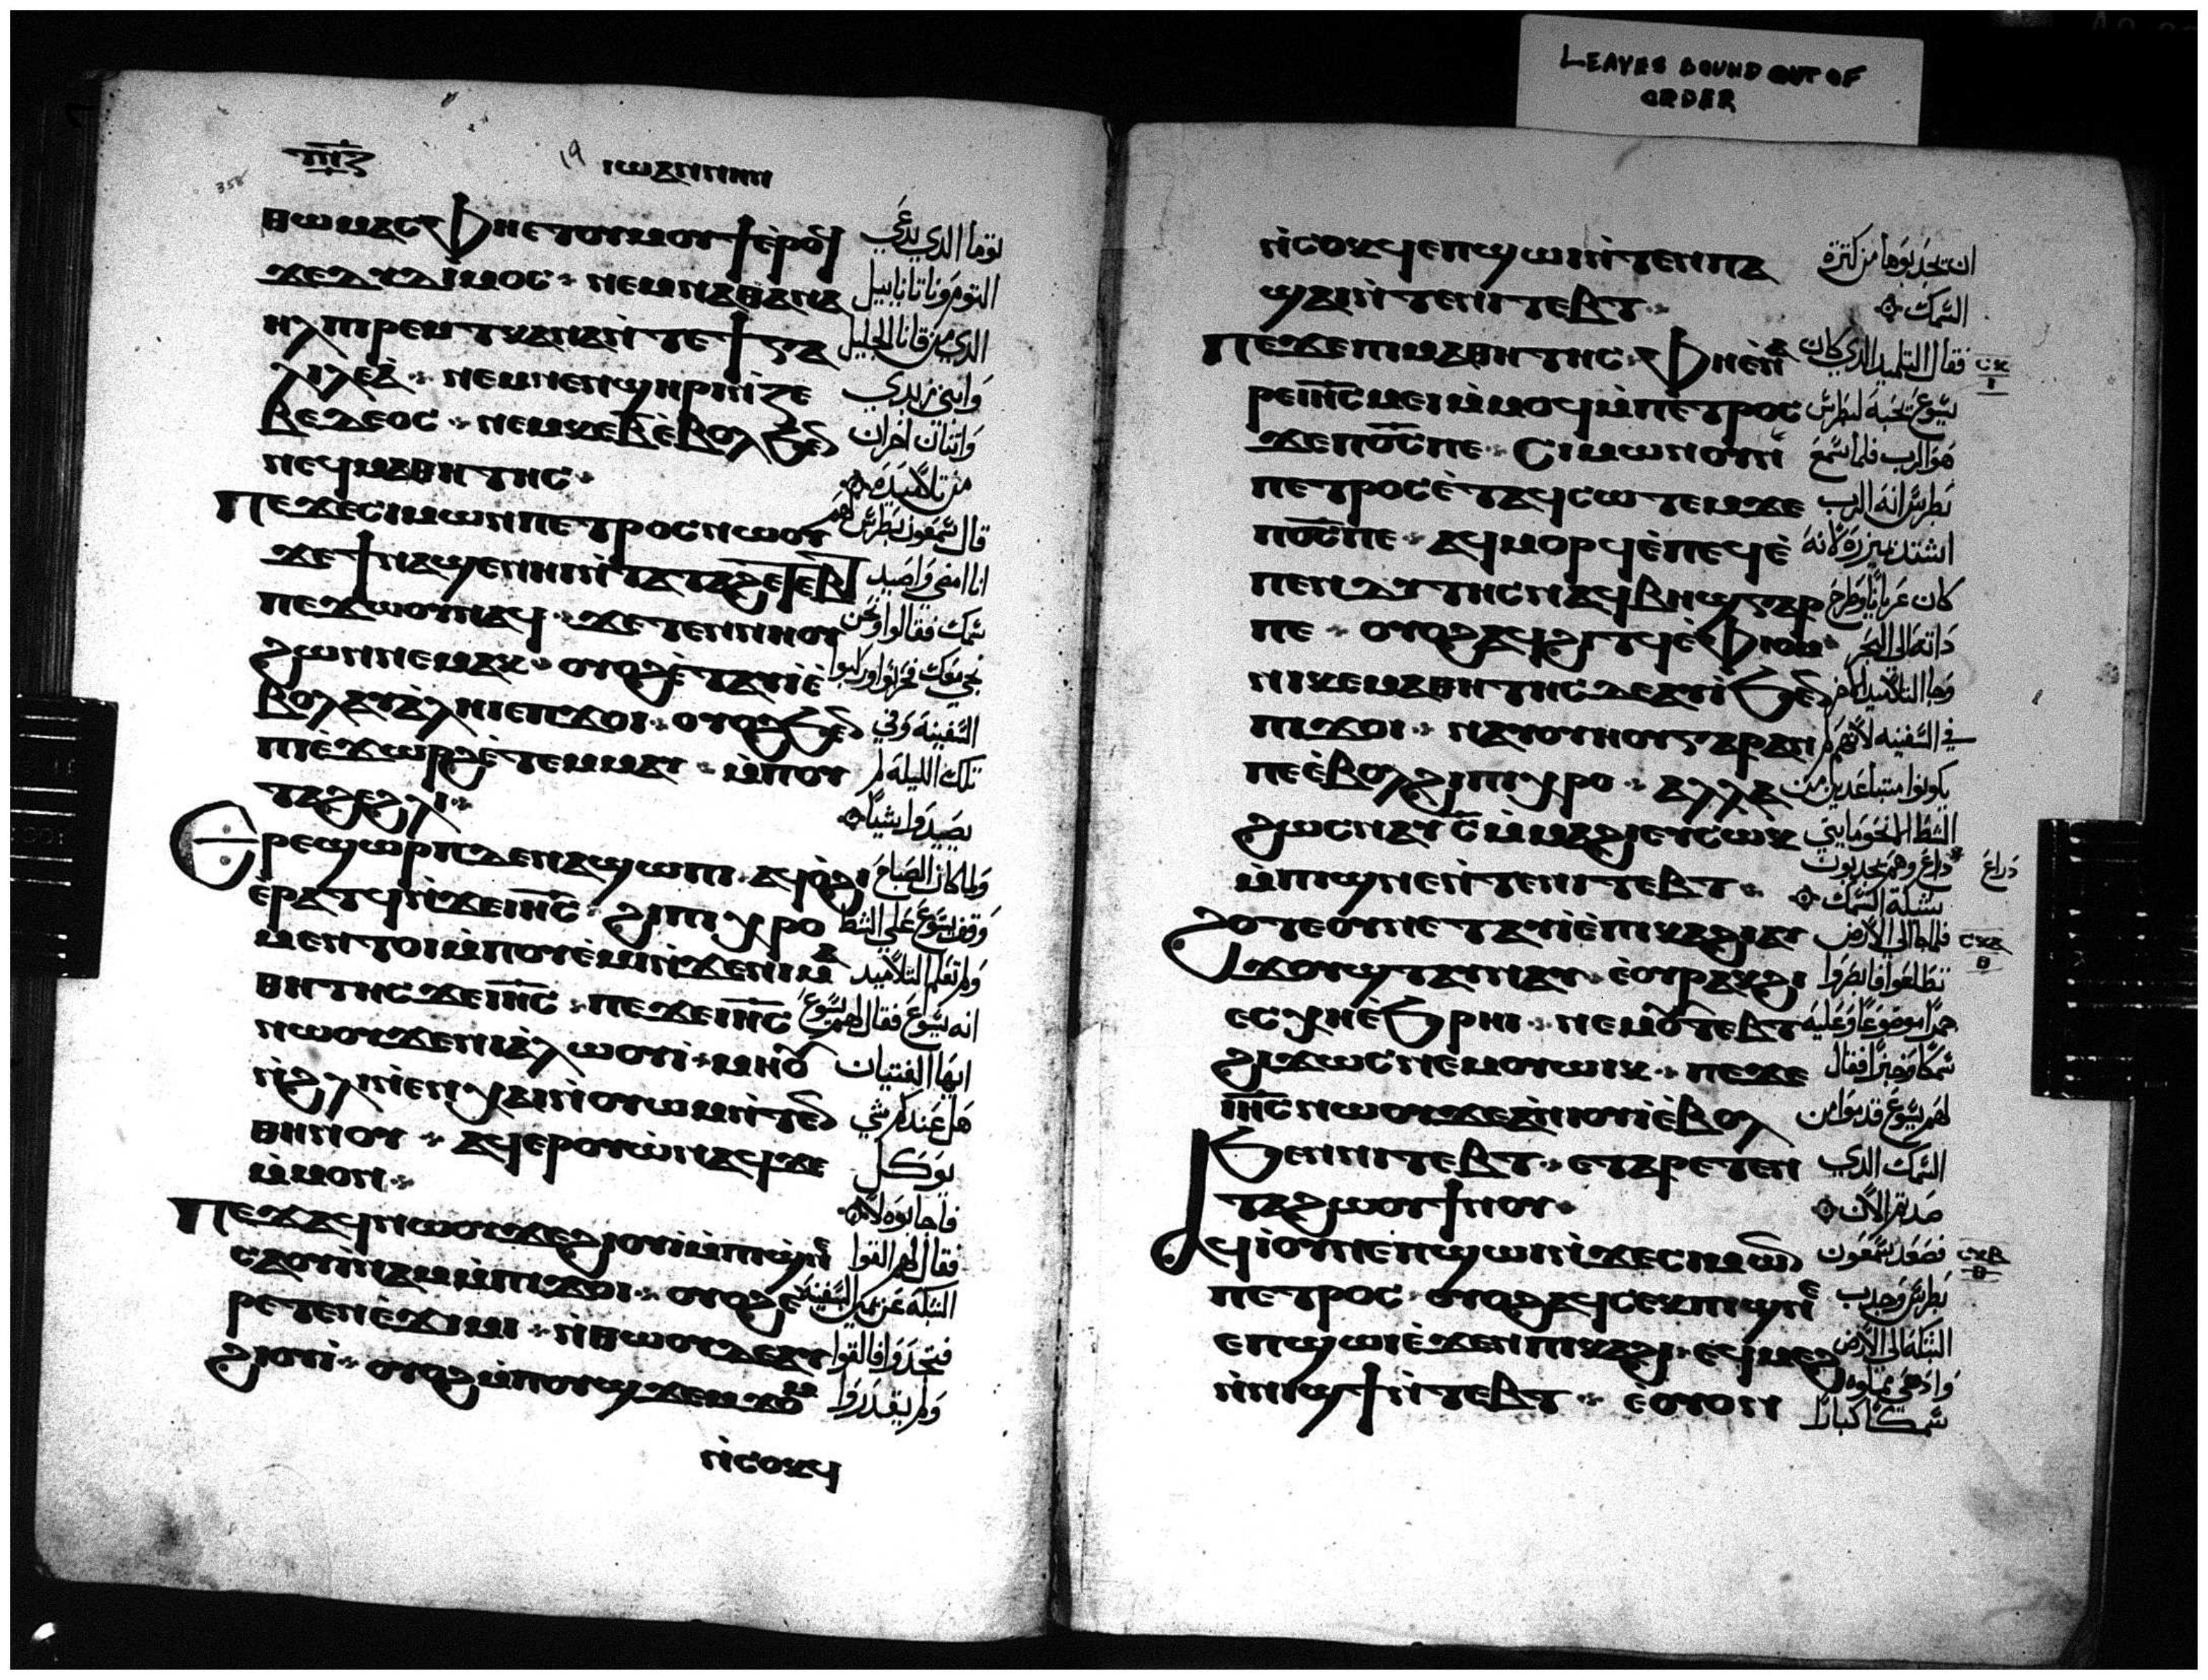 LEAVES BOUND OUT OF
ORDER
ⲓⲱⲁⲛⲛⲏⲛ
19
358
ⲑⲱⲙⲁⲥ ⲫⲏⲉⲧⲟⲩⲙⲟⲩϯ ⲉ̀ⲣⲟϥ توما الذي يدعى
ϫⲉⲇⲓⲇⲓⲙⲟⲥ ⲛⲉⲙ ⲛⲁⲑⲁⲛⲁ التوم وناتانابيل
ⲏⲗ ⲡⲓⲣⲉⲙ ⲧⲕⲁⲛⲁ ⲛ̀ⲧⲉ ϯⲅⲁ الذي من قانا الجليل
ⲗⲓⲗⲉⲁ̀ ⲛⲉⲙ ⲛⲉⲛϣⲏⲣⲓ ⲛ̀ⲍⲉ وابني زبدي
ⲃⲉⲇⲉⲟⲥ ⲛⲉⲙ ⲕⲉⲃ̅ ⲉ̀ⲃⲟⲗ ϧⲉⲛ واتنان اخران
ⲛⲉϥⲙⲁⲑⲏⲧⲏⲥ من تلاميده
ⲡⲉϫⲉ ⲥⲓⲙⲱⲛ ⲡⲉⲧⲣⲟⲥ ⲛⲱⲟⲩ قال شمعون بطرس لهم
ϫⲉ ϯⲛⲁϣⲉⲛⲏⲓ ⲛ̀ⲧⲁⲧⲁϩⲉⲧⲉⲃⲧ انا امضي واصيد
ⲡⲉϫⲱⲟⲩ ⲛⲁϥ ϫⲉ ⲧⲉⲛⲛⲏⲟⲩ سمك فقالوا ونحن
ϩⲱⲛ ⲛⲉⲙⲁⲕ ⲟⲩⲟϩ ⲉ̀ⲧⲁⲩⲓ̀ ⲉ̀ نجي معك فخرجوا وركبوا
ⲃⲟⲗ ⲁⲩⲁ̀ⲗⲏⲓ ⲉⲡϫⲟⲓ ⲟⲩⲟϩ ϧⲉⲛ السفينه وفي
ⲡⲓⲉ̀ϫⲱⲣϩ ⲉ̀ⲧⲉⲙⲙⲁⲩ ⲙ̀ⲡⲟⲩ تلك الليله لم
ⲧⲁϩⲉϩⲗⲓ يصيدوا شيًا
Ⲉⲣⲉϣⲱⲣⲡ ⲇⲉ ⲛⲁϣⲱⲡⲓ ⲁϥⲟ̀ϩⲓ ولما كان الصباح
ⲉ̀ⲣⲁⲧϥ ⲛ̀ϫⲉ ⲓⲏ̅ⲥ̅ ϩⲓ ⲡⲓⲭⲣⲟ وقف يسوع على الشط
ⲙⲉⲛⲧⲟⲓ ⲙ̀ⲡⲟⲩⲉ̀ⲙⲓ ⲛ̀ϫⲉ ⲛⲓⲙⲁ ولم تعلم التلاميد
ⲑⲏⲧⲏⲥ ϫⲉ ⲓⲏ̅ⲥ̅ ⲡⲉϫⲉ ⲓⲏ̅ⲥ̅ انه يسوع فقال لهم يسوع
ⲛⲱⲟⲩ ϫⲉ ⲛⲓⲁ̀ⲗⲱⲟⲩⲓ̀ ⲙⲏ ⲟⲩⲟⲛ ايها الفتيان
ⲛ̀ϩⲗⲓ ⲛ̀ⲉⲛⲭⲁⲓ ⲛ̀ⲟⲩⲱⲙ ⲛ̀ⲧⲉⲛ هل عندكم شي
ⲑⲏⲛⲟⲩ ⲁϥⲉⲣⲟⲩⲱ̀ ⲛⲁϥ ϫⲉ يوكل
ⲙ̀ⲙⲟⲛ فاجابوه لا
Ⲡⲉϫⲁϥ ⲛⲱⲟⲩ ϫⲉ ϩⲓⲟⲩⲓ̀ ⲙ̀ⲡⲓϣⲛⲉ فقال لهم القوا
ⲥⲁⲟⲩⲓ̀ⲛⲁⲙ ⲙ̀ⲡⲓϫⲟⲓ ⲟⲩⲟϩ ⲉ̀ الشبكه عن يمين السفينه
ⲣⲉⲧⲉⲛⲉ̀ϫⲓⲙⲓ ⲛ̀ⲑⲱⲟⲩ ⲇⲉ ⲁⲩ فتجدوا فالقوا
ϩⲓⲟⲩⲓ̀ ⲟⲩⲟϩ ⲙ̀ⲡⲟⲩϣϫⲉⲙϫⲟⲙ ولم يقدروا
ⲛ̀ⲥⲟⲕϥ
ⲛ̀ⲥⲟⲕϥ ⲉⲡϣⲱⲓ ⲛ̀ⲧⲉⲛ ⲡⲁ ان يجدبوها من كترة
ϣⲁⲓ ⲛ̀ⲧⲉ ⲛⲓⲧⲉⲃⲧ السمك
Ⲡⲉϫⲉ ⲡⲓⲙⲁⲑⲏⲧⲏⲥ ⲫⲏ ⲉ̀ⲛⲁ فقال التلميد الذي كان
ⲣⲉ ⲓⲏ̅ⲥ̅ ⲙⲉⲓ ⲙ̀ⲙⲟϥ ⲙ̀ⲡⲉⲧⲣⲟⲥ يسوع يحبه لبطرس
ϫⲉ ⲡⲟ̅ⲥ̅ ⲡⲉ ⲥⲓⲙⲱⲛ ⲟⲩⲛ هو الرب فلما سمع
ⲡⲉⲧⲣⲟⲥ ⲉ̀ⲧⲁϥⲥⲱⲧⲉⲙ ϫⲉ بطرس انه الرب
ⲡⲟ̅ⲥ̅ ⲡⲉ ⲁϥⲙⲟⲣϥ ⲉ̀ⲡⲉϥⲉ̀ اشتد بميزره لانه
ⲡⲉⲛⲇⲩⲧⲏⲥ ⲛⲁϥⲃⲏϣ ⲅⲁⲣ كان عريانًا وطرح
ⲡⲉ ⲟⲩⲟϩ ⲁϥϩⲓⲧϥ ⲉ̀ⲫⲓⲟⲙ داته الى البحر
ⲛⲓⲕⲉⲙⲁⲑⲏⲧⲏⲥ ⲇⲉ ⲁⲩⲓ̀ ϧⲉⲛ وجا التلاميد الاخر
ⲡⲓϫⲟⲓ ⲛⲁⲩⲟⲩⲏⲟⲩ ⲅⲁⲣ ⲁⲛ في السفينه لانهم لم
ⲡⲉ ⲉ̀ⲃⲟⲗ ϩⲓ ⲡⲓⲭⲣⲟ ⲁⲗⲗⲁ يكونوا متباعدين من
ϩⲱⲥ ⲛⲁⲩ ⲥ̅ ⲙ̀ⲙⲁϩⲓ ⲉⲩⲥⲱⲕ الشط الا نحو مايتي
ذراع وهم يجدبون
ذراع
ⲙ̀ⲡⲓϣⲛⲉ ⲛ̀ⲧⲉ ⲛⲓⲧⲉⲃⲧ شبكة السمك
ϩⲟⲧⲉ ⲟⲩⲛ ⲉⲧⲁⲩⲓ̀ ⲉ̀ⲡⲓⲕⲁϩⲓ ⲁⲩ فلما جا الى الارض
ϫⲟⲩϣⲧ ⲁⲩⲛⲁⲩ ⲉ̀ⲟⲩⲣⲁⲕϩⲓ تطلعوا فانظروا
ⲉⲥⲭⲏ ⲉ̀ϧⲣⲏⲓ ⲛⲉⲙ ⲟⲩⲧⲉⲃⲧ جمرًا موضوعًا وعليه
ϩⲓϫⲱⲥ ⲛⲉⲙ ⲟⲩⲱⲓⲕ ⲡⲉϫⲉ سمكًا وخبزًا فقال
ⲓⲏ̅ⲥ̅ ⲛⲱⲟⲩ ϫⲉ ⲁ̀ⲛⲓⲟⲩⲓ̀ ⲉ̀ⲃⲟⲗ لهم يسوع قدموا من
ϧⲉⲛ ⲛⲓⲧⲉⲃⲧ ⲉⲧⲁⲣⲉⲧⲉⲛ السمك الذي
ⲧⲁϩⲱⲟⲩ ϯⲛⲟⲩ صدتم الان
ⲁϥⲓ̀ ⲟⲩⲛ ⲉⲡϣⲱⲓ ⲛ̀ϫⲉ ⲥⲓⲙⲱⲛ فصعد شمعون
ⲡⲉⲧⲣⲟⲥ ⲟⲩⲟϩ ⲁϥⲥⲉⲕ ⲡⲓϣⲛⲉ بطرس وجدب
ⲉⲡϣⲱⲓ ⲉ̀ϫⲉⲛ ⲡⲓⲕⲁϩⲓ ⲉϥⲙⲉϩ الشبكه الى الارض
ⲛ̀ⲛⲓϣϯ ⲛ̀ⲧⲉⲃⲧ ⲉ̀ⲟⲩⲟⲛ سمكًا كبارًا